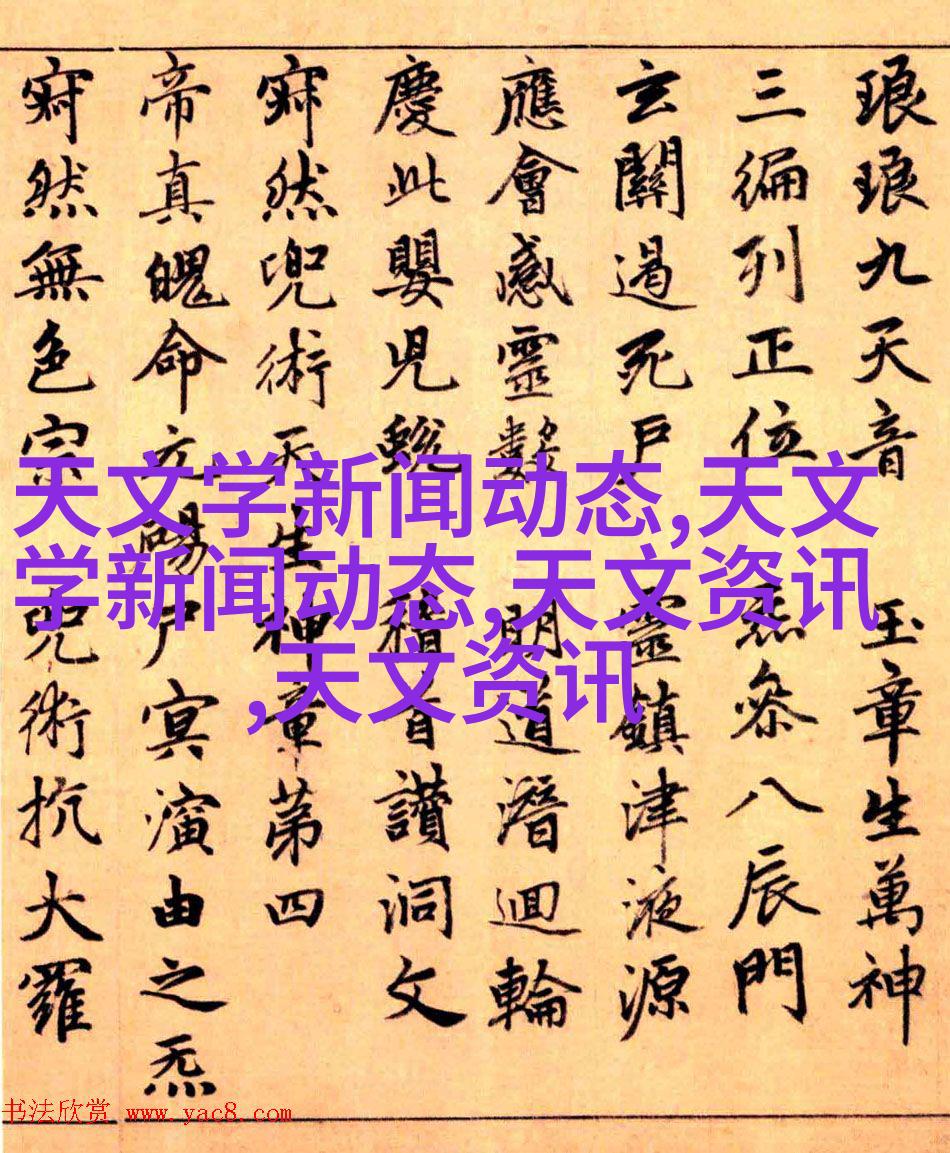 琅琅九天音 玉章生萬神
三編列正位 炁衆八辰門
玄關遏死戶 靈鎮津液源
應會感靈數 明道潛迴輪
慶此嬰兒蛻 稽首讚洞文
寂然兜術天生神章第四
帝真
命
尸冥演由之炁
寂然無色宗
兜術抗大羅
天文学新闻动态,天文
学新闻动态,天文资讯
,天文资讯
书法欣赏 www.yac8.com